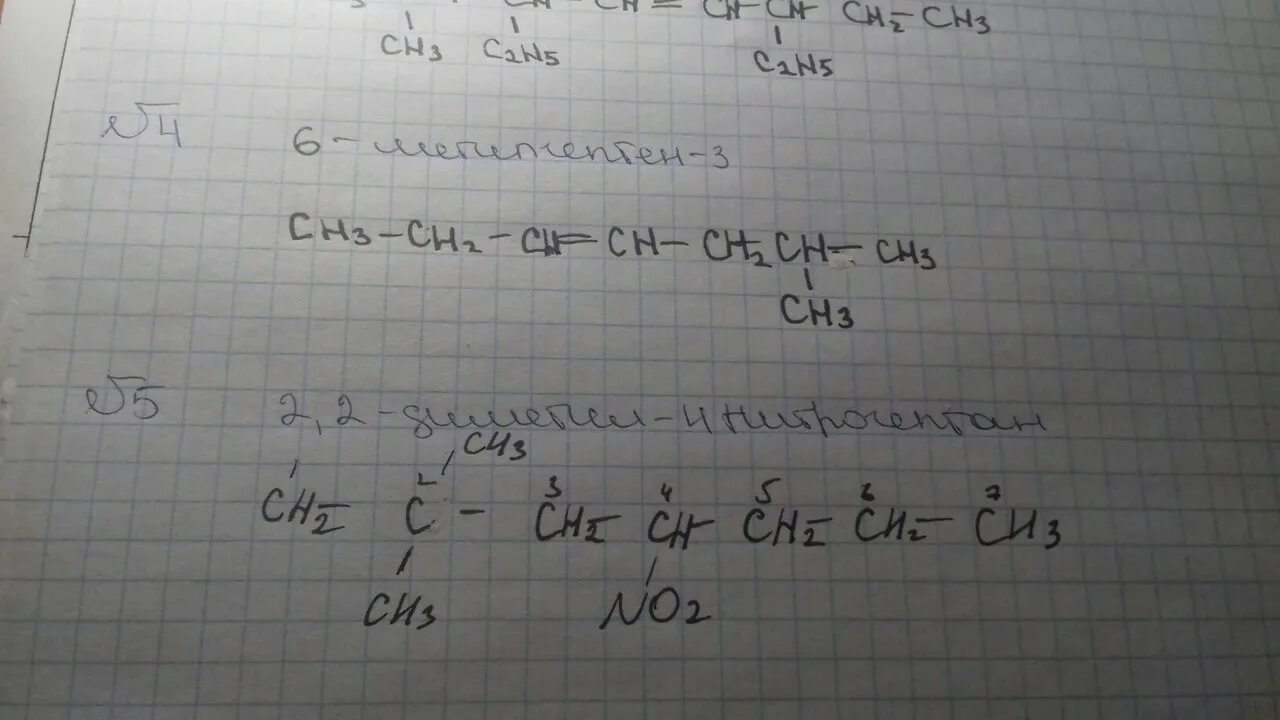 CH = CH CH CH2 - CH3
CH3 C2H5 C2H5
№4 6 - метилгептен-3
CH3 - CH2 - CH = CH - CH2 CH - CH3
CH3
№5 2,2 - диметил - 4 нитрогептан
CH3
1 2 3 4 5 6 7
CH2 - C - CH2 - CH - CH2 - CH2 - CH3
CH3 NO2